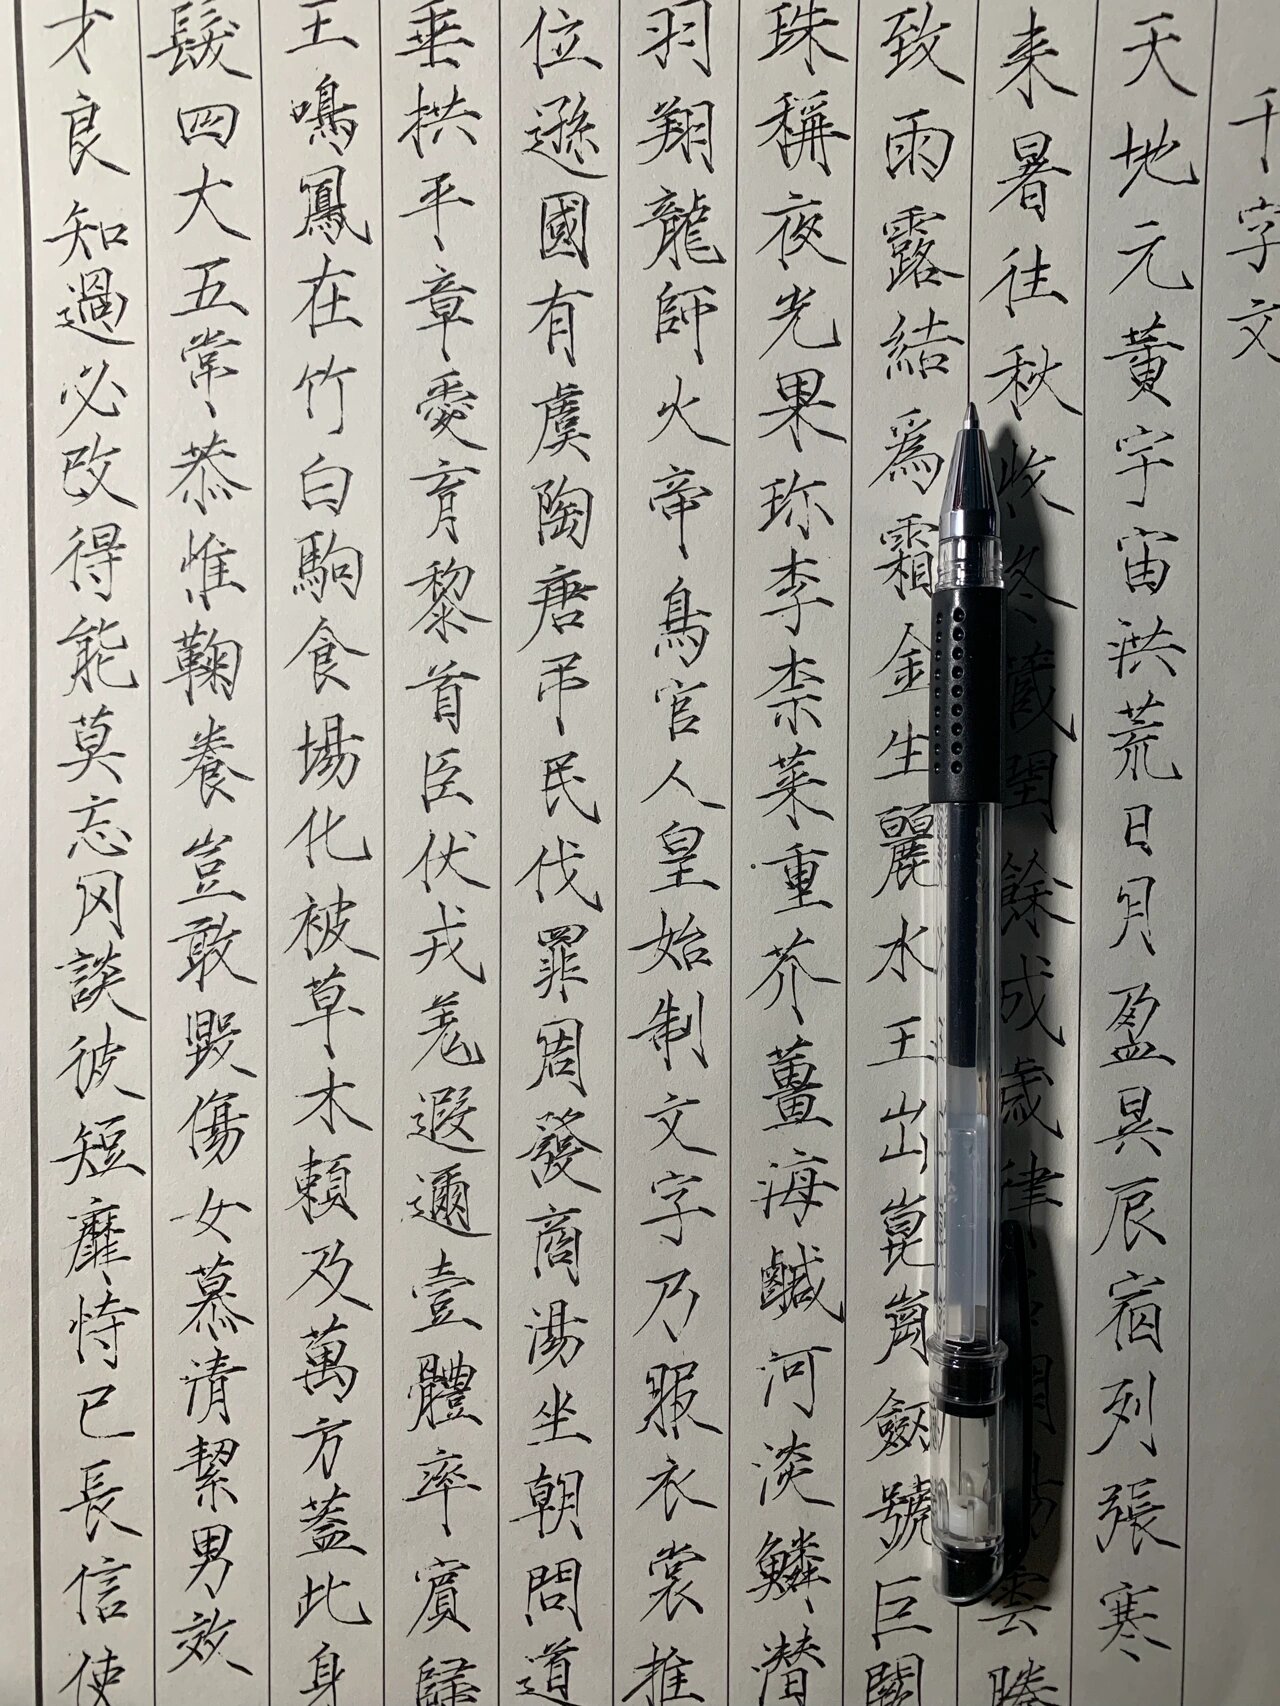 千字文
天地元黃宇宙洪荒日月盈昃辰宿列張寒
来暑往秋收冬蔵閏餘成歲律雲騰
致雨露結為霜金生麗水玉出崑崗劔號巨闕
珠稱夜光果珎李柰菜重芥薑海鹹河淡鱗潛
羽翔龍師火帝鳥官人皇始制文字乃服衣裳推
位遜國有虞陶唐吊民伐罪周發商湯坐朝問道
垂拱平章愛育黎首臣伏戎羌遐邇壹體率賓歸
王鳴鳳在竹白駒食場化被草木賴及萬方蓋此身
髮四大五常恭惟鞠養豈敢毀傷女慕清絜男效
才良知過必改得能莫忘罔談彼短靡恃己長信使